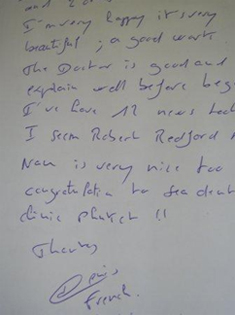 and
I'm very happy it's very
beautiful ; a good work.
The Doctor is good and
explain well before begi
I've have 12 news teet
I seem Robert Redford
Nan is very nice too
congratulation to sea dent
clinic phuket !!
Thanks
Denis
French.